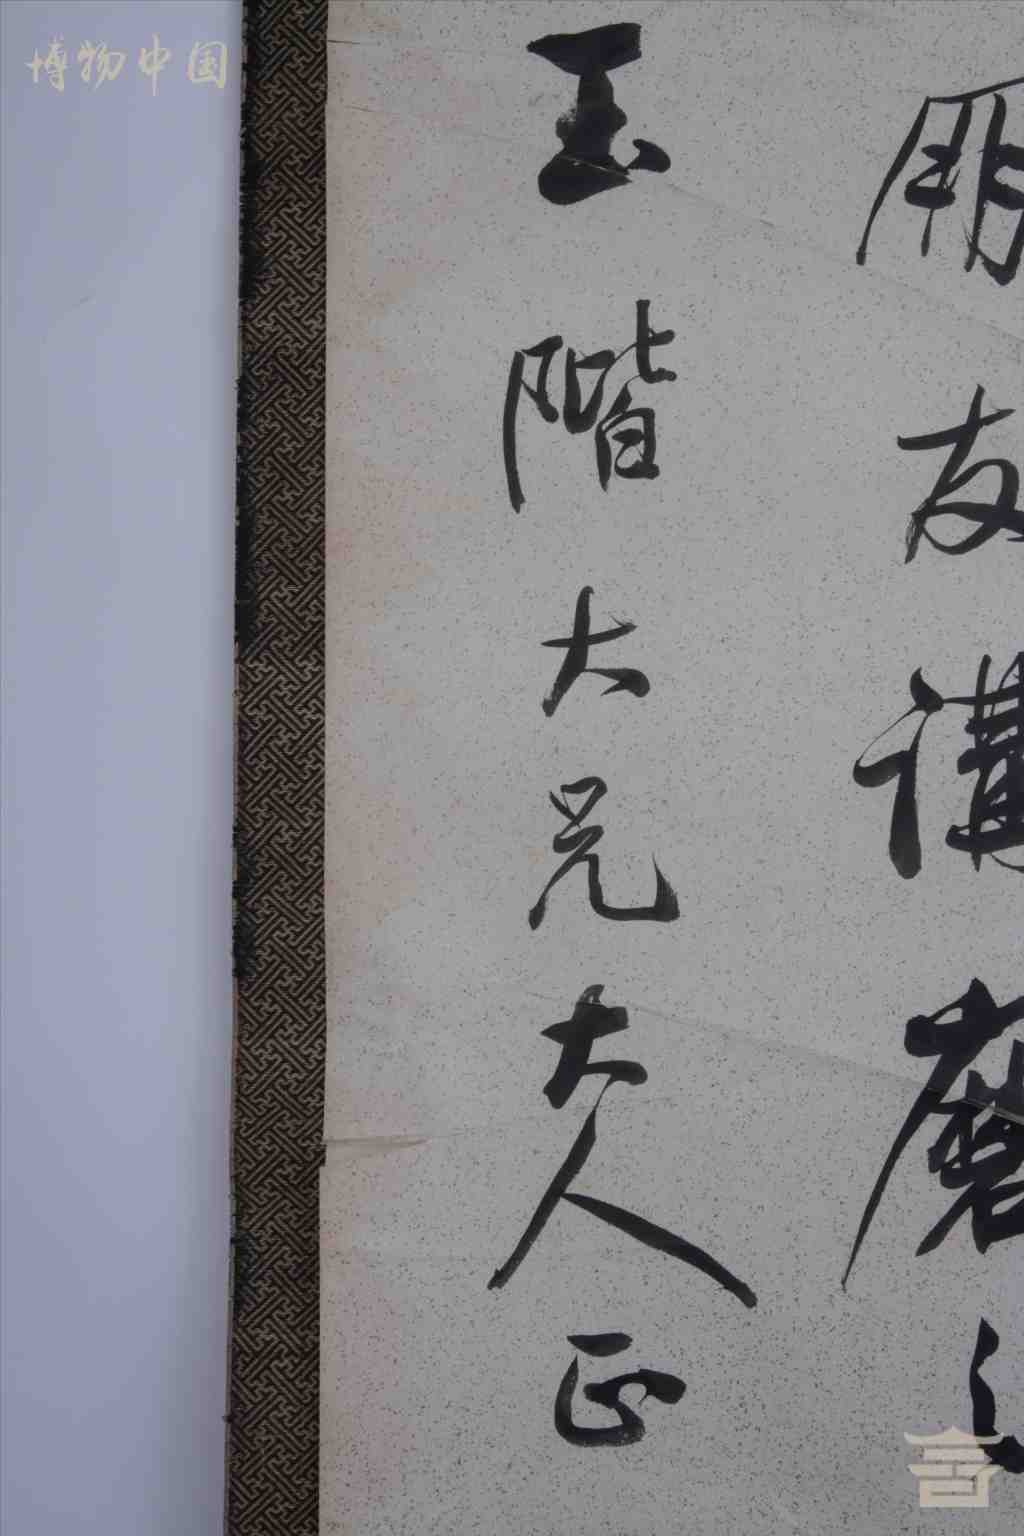 博物中国
朋友講磨之
玉階大兄大人正